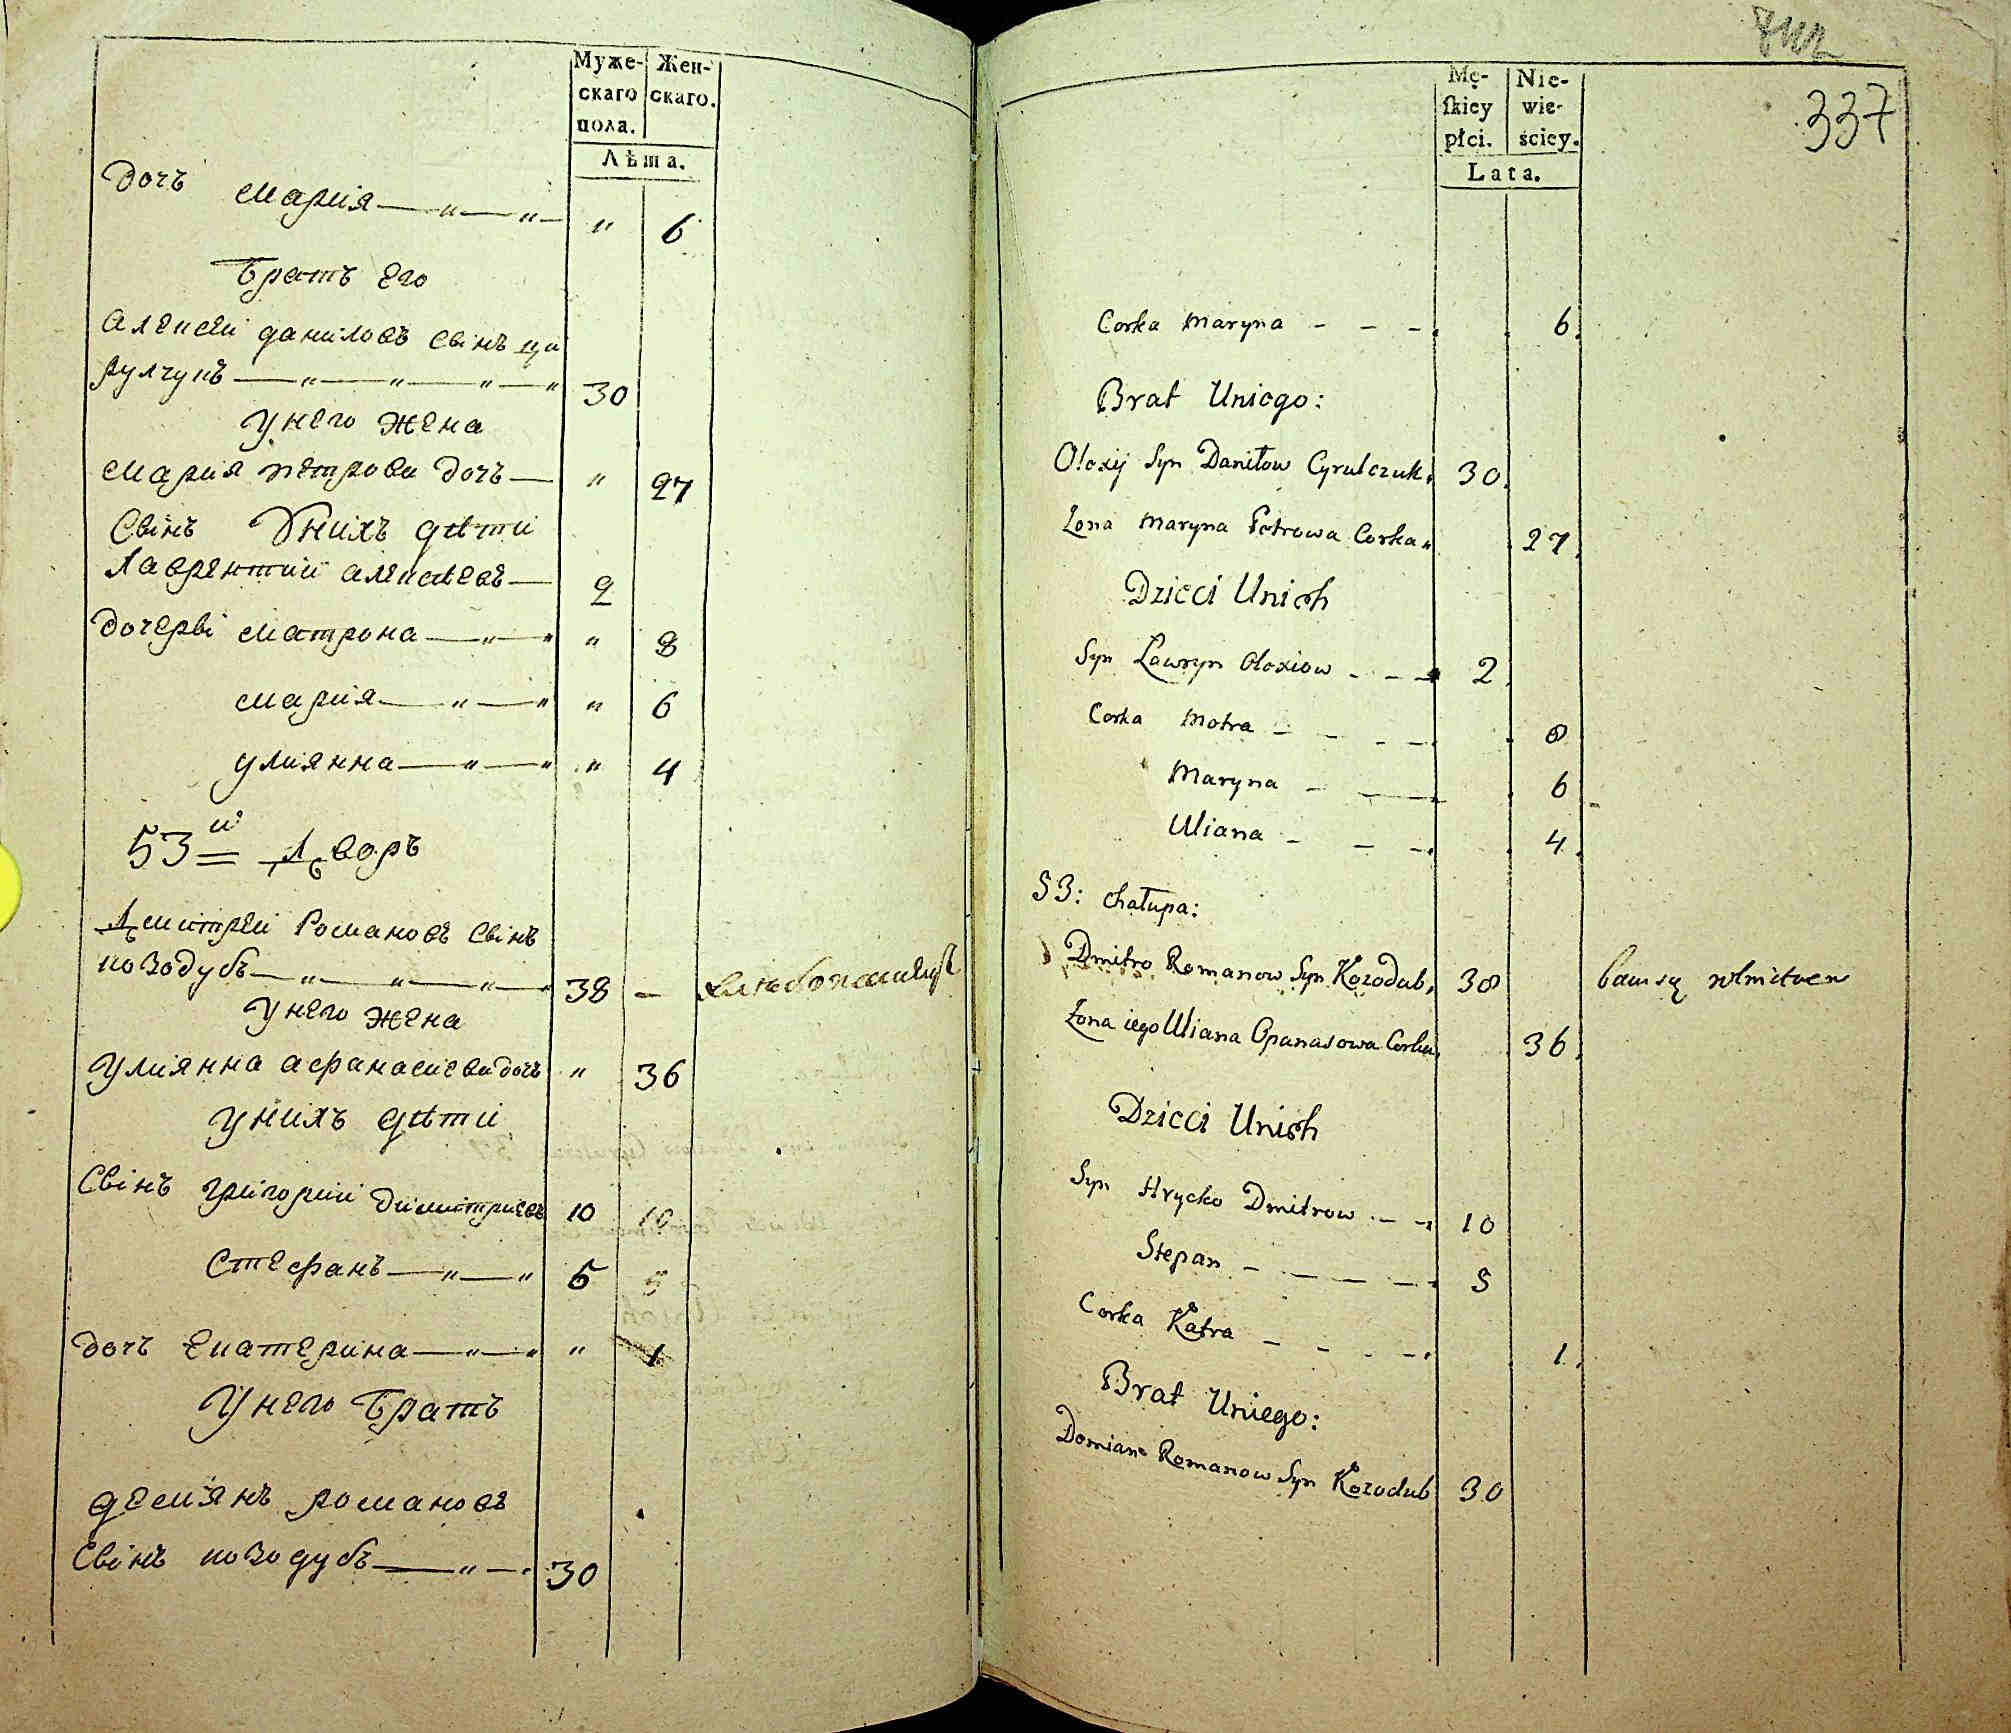 Муже- Жен-
скаго скаго.
пола.
Лѣта.
дочь Мария — " — " — " 6
Братъ Его
Алексей Данiловъ Сiнъ Ци
рулчукъ — " — " — " — " 30
У него Жена
Мария Петрова дочь — " 27
Сiнъ У нихъ дѣти
Лаврентий Алексѣевъ — 2
дочерi Матрона — " — " " 8
Мария — " — " " 6
Улиянна — " — " " 4
53й Дворъ
Дмитрей Романовъ Сiнъ
Козодубъ — " — " — " — " 38 —
У него Жена
Улиянна Афанасиева дочь " 36
У нихъ дѣти
Сiнъ Григорий Димитриевъ 10
Стефанъ — " — " 5
дочь Екатерина — " — " " 1
У него Братъ
Демiянъ Романовъ
Сiнъ Козодубъ — " — 30
337
Mę- Nie-
skiey wie-
płci. ściey.
Lata.
Corka Maryna - - - 6.
Brat Uniego:
Olexij Syn Daniłow Cyrulczuk. 30.
Żona Maryna Petrowa Corka. 27.
Dzieci Unich
Syn Ławryn Olexiow - - - 2.
Corka Motra - - - - 8
Maryna - - 6
Uliana - - - 4.
53: Chałupa:
Dmitro Romanow Syn Kozodub, 38
Żona iego Uliana Opanasowa Corka. 36.
Dzieci Unich
Syn Hrycko Dmitrow - - 10
Stepan - - - - 5
Corka Katra - - - - 1.
Brat Uniego:
Domian Romanow Syn Kozodub 30